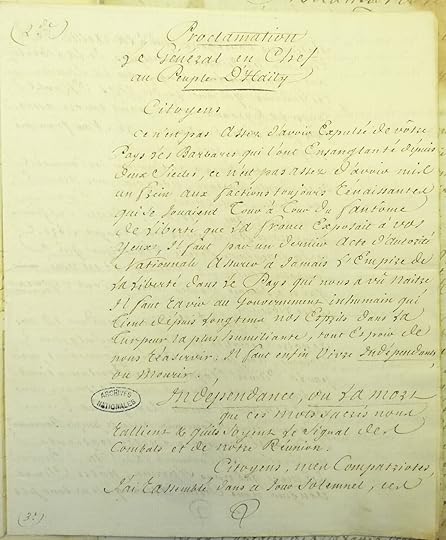 (2e.)
Proclamation
Le Général en Chef
au Peuple D'Haïty
Citoyens
Ce n'est pas Assez d'avoir Expulsé de vôtre
Pays les Barbares qui l'ont Ensanglanté depuis
deux Siecles, ce n'est pas assez d'avoir mis
un frein aux factions toujours Renaissantes
qui se Jouaient Tour à Tour du fantome
de Liberté que la france Exposait à vos
Yeux; Il faut par un dernier Acte d'Autorité
Nationale Assurer à Jamais L'Empire de
la Liberté dans le Pays qui nous a vû Naitre
Il faut Ravir au Gouvernement inhumain qui
tient depuis Longtems nos Esprits dans la
torpeur la plus humiliante, tout Espoir de
nous Réaservir. Il faut enfin Vivre Indépendans
ou Mourir.
Indépendance, ou La Mort
que ces mots sacrés nous
Rallient & qu'ils soyent le signal des
Combats et de notre Réunion.
Citoyens, mes Compatriotes,
J'ai Rassemblé dans ce Jour Solemnel, ces
ARCHIVES
NATIONALES
(3e.)